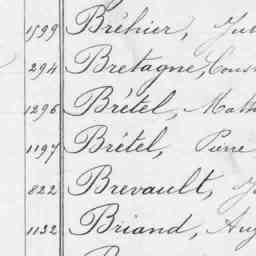 1599 Bréhier,
294 Bretagne,
1296 Brétel,
1197 Brétel, Pierre
822 Brevault,
1132 Briand,